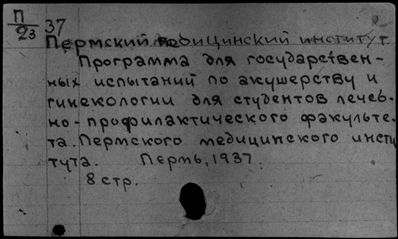 П
23 37
Пермский медицинский институт
Программа для государствен-
ных испытаний по акушерству и
гинекологии для студентов лечеб-
но-профилактического факульте-
та. Пермского медицинского инсти
тута. Пермь, 1937.
8 стр.